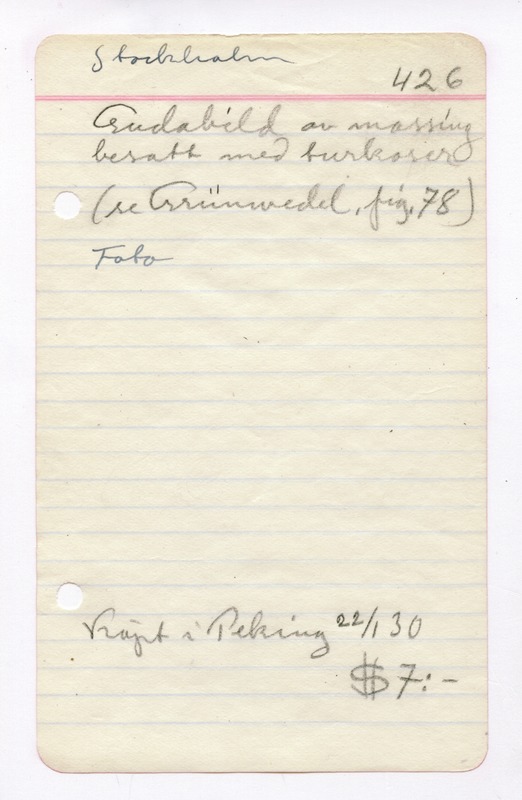 Stockholm
426
Gudabild av mässing
besatt med turkoser
(se Grünwedel, fig. 78)
Foto
Köpt i Peking 22/1 30
$ 7:-